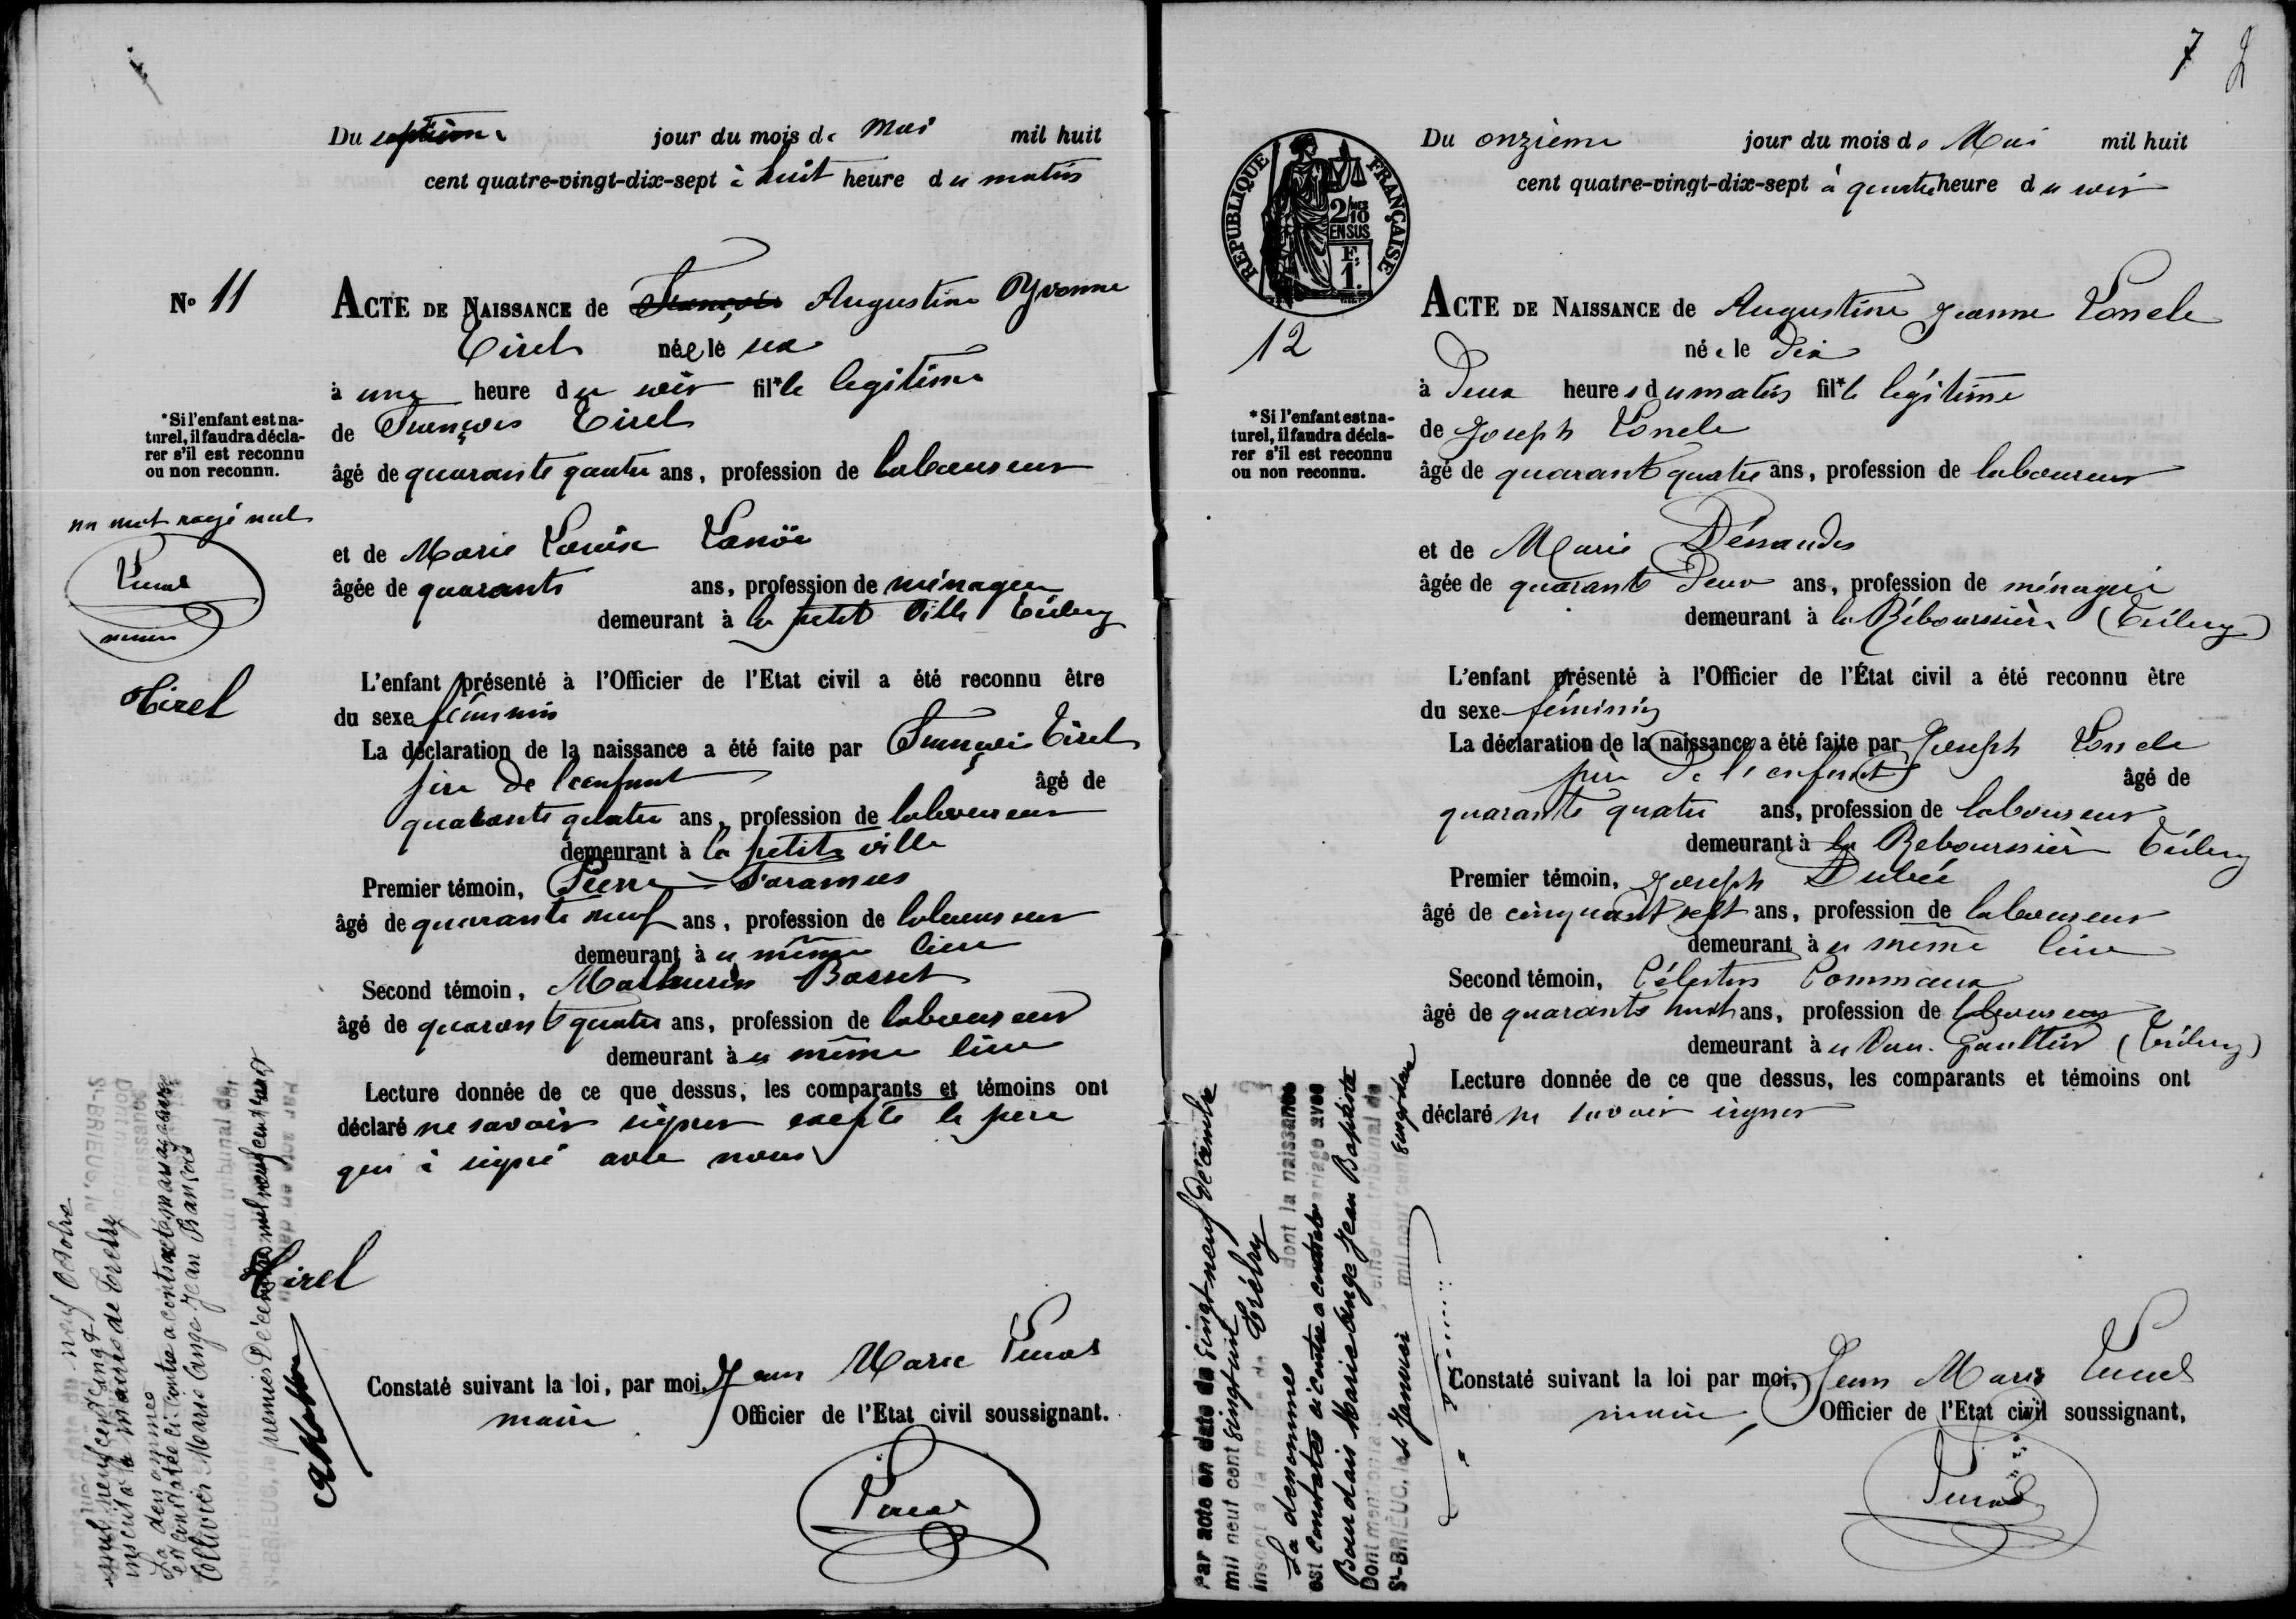 Du septième jour du mois de Mai mil huit
cent quatre-vingt-dix-sept à huit heure du matin
No 11
ACTE DE NAISSANCE de François Augustine Yvonne
Tirel née le six
à une heure du soir fille légitime
de François Tirel
âgé de quarante quatre ans, profession de laboureur
*Si l'enfant est na-
turel, il faudra décla-
rer s'il est reconnu
ou non reconnu.
un mot rayé nul
Tirel
et de Marie Louise Lanoë
âgée de quarante ans, profession de ménagère
demeurant à la petite Ville Trébry
L'enfant présenté à l'Officier de l'Etat civil a été reconnu être
du sexe féminin
La déclaration de la naissance a été faite par François Tirel
père de l'enfant âgé de
quarante quatre ans, profession de laboureur
demeurant à la petite ville
Premier témoin, Pierre
âgé de quarante neuf ans, profession de laboureur
demeurant à u même lieu
Second témoin, Mathurin Basset
âgé de quarante quatre ans, profession de laboureur
demeurant à u même lieu
Lecture donnée de ce que dessus, les comparants et témoins ont
déclaré ne savoir signer excepté le père
qui a signé avec nous
Tirel
Constaté suivant la loi, par moi, Jean Marie
maire Officier de l'Etat civil soussignant.
neuf Octobre
mil neuf cent vingt
inscrit à la mairie de Trébry
La dénommée
est constatée ci-contre a contracté mariage avec
Collivier Marie Ange Jean François
le premier Décembre mil neuf cent vingt
7
2
Du onzième jour du mois de Mai mil huit
cent quatre-vingt-dix-sept à quatre heure du soir
REPUBLIQUE FRANÇAISE
2/10 mes
EN SUS
F.
1.
12
ACTE DE NAISSANCE de Augustine Jeanne Loncle
née le dix
à deux heures du matin fille légitime
de Joseph Loncle
âgé de quarante quatre ans, profession de laboureur
*Si l'enfant est na-
turel, il faudra décla-
rer s'il est reconnu
ou non reconnu.
et de Marie Désandes
âgée de quarante deux ans, profession de ménagère
demeurant à la Réboursière (Trébry)
L'enfant présenté à l'Officier de l'État civil a été reconnu être
du sexe féminin
La déclaration de la naissance a été faite par Joseph Loncle
père de l'enfant âgé de
quarante quatre ans, profession de laboureur
demeurant à la Reboursière Trébry
Premier témoin, Joseph Dubée
âgé de cinquante sept ans, profession de laboureur
demeurant à u même lieu
Second témoin, Célestin Commaux
âgé de quarante huit ans, profession de laboureur
demeurant à u Gaultier (Trébry)
Lecture donnée de ce que dessus, les comparants et témoins ont
déclaré ne savoir signer
Constaté suivant la loi par moi, Jean Marie
maire, Officier de l'Etat civil soussignant,
Par acte en date du vingt-neuf Décembre
mil neuf cent vingt un
inscrit à la mairie de Trébry
La dénommée dont la naissance
est constatée ci-contre a contracté mariage avec
Bourdais Marie Ange Jean Baptiste
Dont mention
St-BRIEUC, le Janvier mil neuf cent vingt-deux